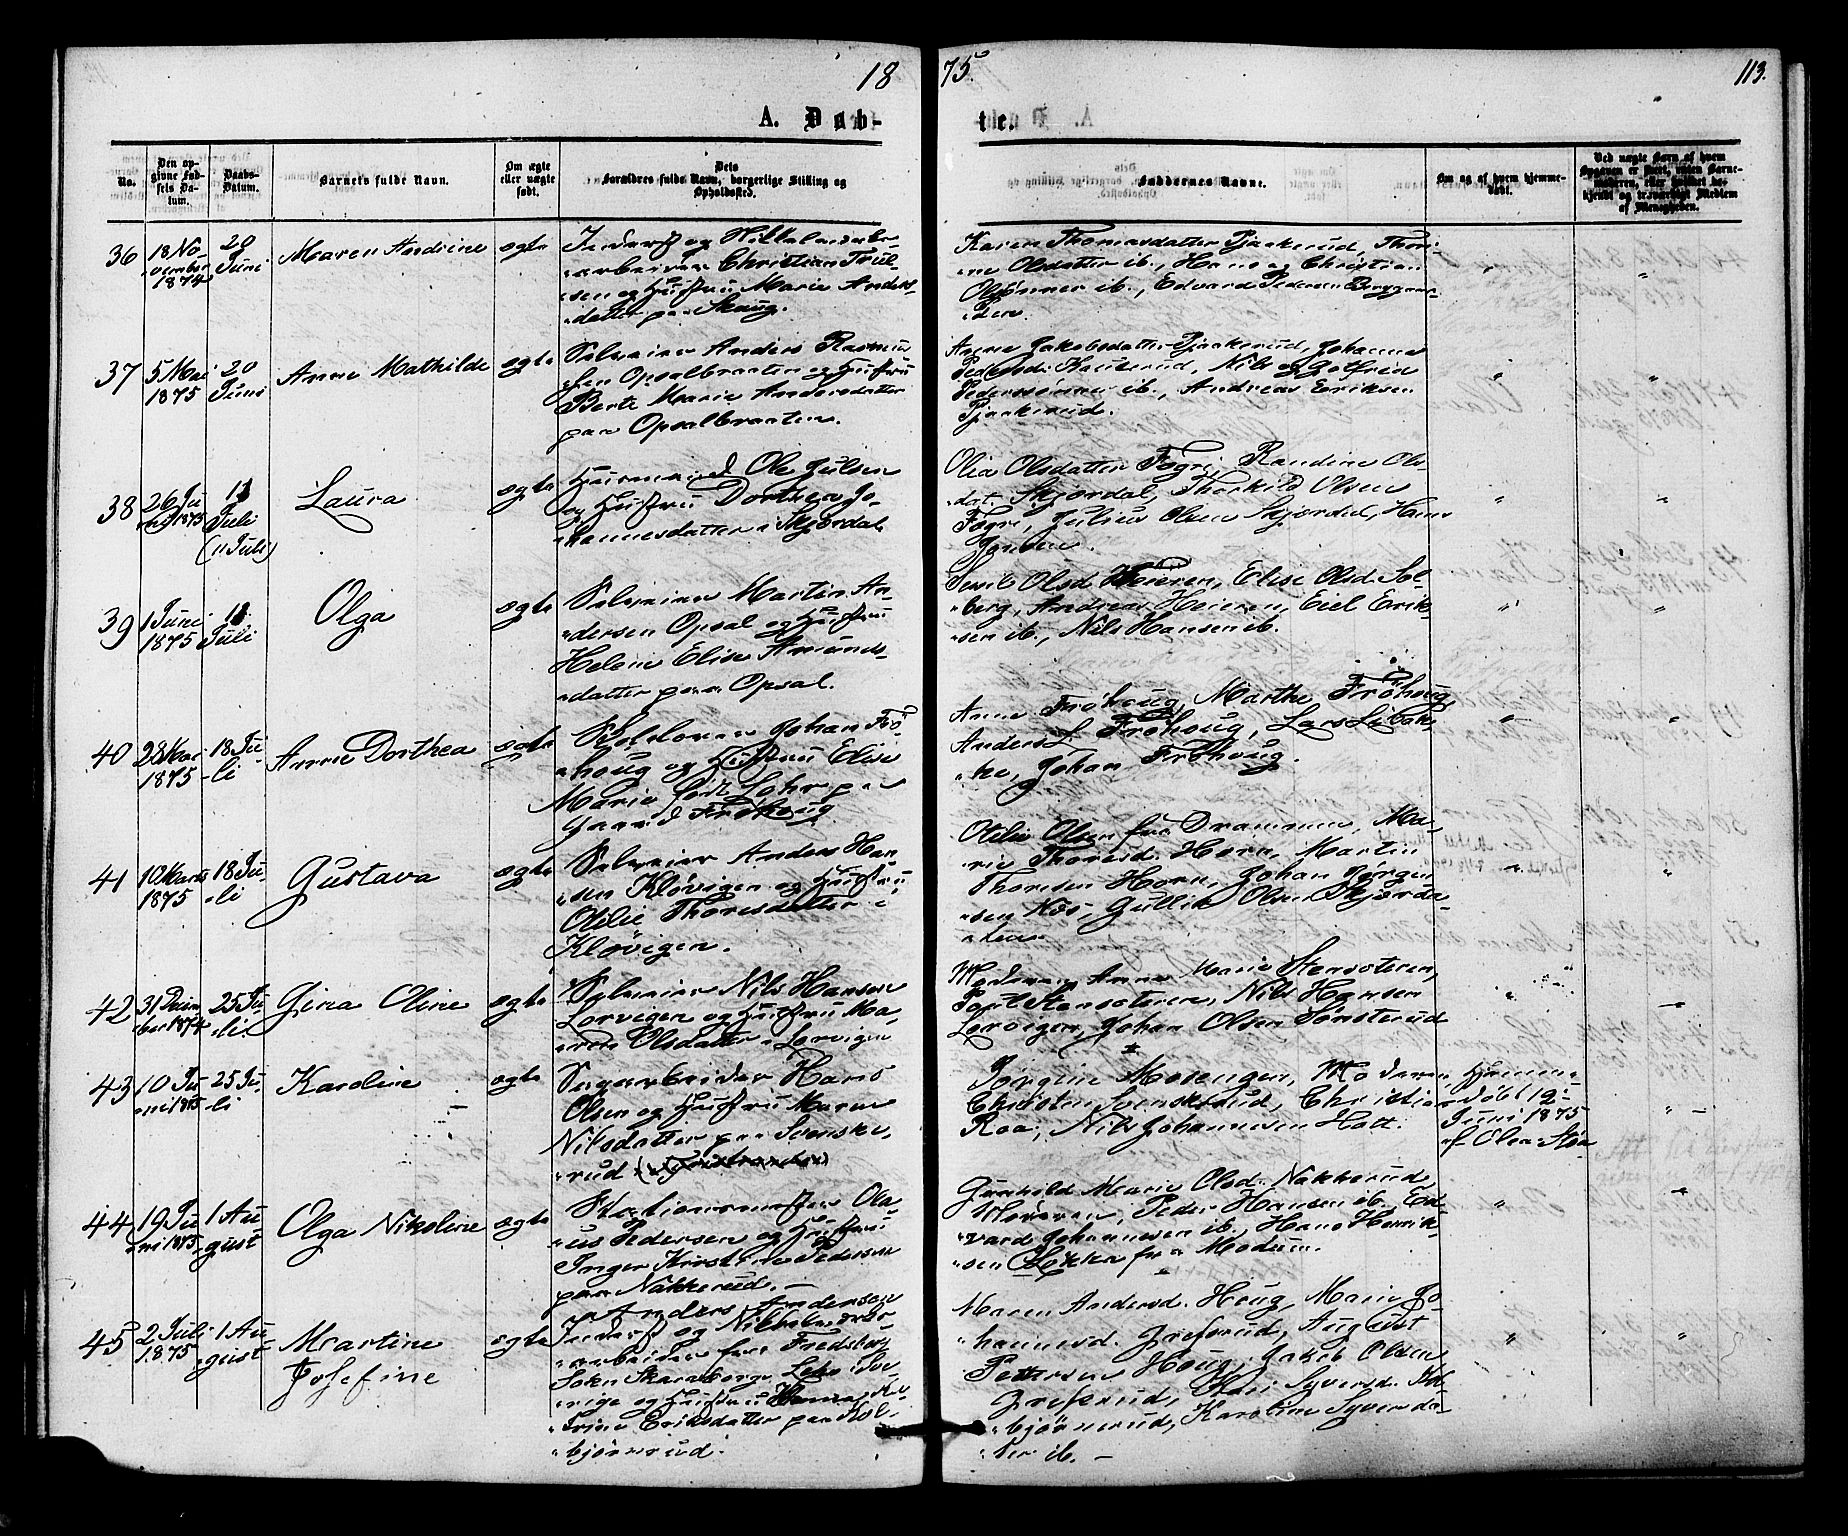 18 75. 113.
A. Døb- te.
No.
Den op-
givne Fød-
sels Da-
tum.
Daabs-
Datum.
Barnets fulde Navn.
Om ægte
eller uægte
født.
Dets
Forældres fulde Navn, borgerlige Stilling og
Opholdssted.
Faddernes Navne.
Om og af hvem hjemme-
døbt.
Ved uægte Børn af hvem
Opgaven er skeet, uden Barne-
moderen, eller hvilket be-
kjendt og troværdigt Medlem
af Menigheden.
36
18 No-
vember
1874
20
Juni
Maren Andrine
ægte
Inderst og
arbeider Christian Truls-
sen og Hustru Marie Anders-
datter paa Skaug.
Karen Thomasdatter Pjaakerud, Thori-
ne Olsdatter ib., Hans og Christian
Olssønner ib., Edvard Pedersen Bryggeri-
en.
37
5 Mai
1875
20
Juni
Anne Mathilde
ægte
Selveier Anders Rasmus-
sen Opsalbraaten og Hustru
Berte Marie Andersdatter
paa Opsalbraaten.
Anne Jakobsdatter Pjaakerud, Johanne
Pedersd. Hauterud, Nils og Gotfred
Pederssønner ib., Andreas Eriksen
Pjaakerud.
38
26 Ju-
ni 1875
11
Juli
(11 Juli)
Laura
ægte
Huusmand Ole Julsen
og Hustru Dorthea Jo-
hannesdatter i Skjørdal.
Olia Olsdatter Fogri, Randine Ols-
dat. Skjørdal, Thorkild Olsen
Fogri, Julius Olsen Skjørdal, Hans
Jonsen.
39
1 Juni
1875
11
Juli
Olga
ægte
Selveier Martin An-
dersen Opsal og Hustru
Helene Elise Amunds-
datter paa Opsal.
Olsd Heieren, Elise Olsd Sol-
berg, Andreas Heieren, Eiel Erik-
sen ib., Nils Hansen ib.
40
28 Mai
1875
18 Ju-
li
Anne Dorthea
ægte
Johan Frø-
houg og Hustru Elise
Marie født Lohr paa
Gaard Frøhoug
Anne Frøhoug, Marthe Frøhoug,
Anders L. Frøhoug, Lars
Johan Frøhoug.
41
10 Marts
1875
18 Ju-
li
Gustava
ægte
Selveier Anders Han-
sen Kløvigen og Hustru
Otilie Thoresdatter i
Kløvigen.
Otilie Olsen fra Drammen, Ma-
rie Thoresd. Horn, Martin
Thoresen Horn, Johan Jørgen-
sen Næs, Gullik Olsen Skjørda-
len.
42
31 Decem-
ber 1874
25 Ju-
li
Gina Oline
ægte
Selveier Nils Hansen
Lørvigen og Hustru Ma-
ren Olsdatter i Lørvigen
Moderen, Anne Marie Stensæteren,
Poul Stensæteren, Nils Hansen
Lørvigen, Johan Olsen Sønsterud
43
10 Ju-
ni 1875
25 Ju-
li
Karoline
ægte
Sagarbeider Hans
Olsen og Hustru Maren
Nilsdatter paa Svenske-
rud
Jørgine Mosengen, Moderen,
Christen Svenskerud, Christian
Roa, Nils Johannesen Hott.
Hjemme-
døbt 12
Juni 1875
af Olea Støa
44
19 Ju-
ni 1875
1 Au-
gust
Olga Nikoline
ægte
Stationsmester Ola-
us Pedersen og Hustru
Inger Kirstine Pedersen
paa Nakkerud.
Gunhild Marie Olsd. Nakkerud,
Moderen, Peder Hansen ib. Ed-
vard Johannesen ib., Hans Henrik-
sen Løkka fra Modum.
45
2 Juli
1875
1 Au-
gust
Martine
Josefine
ægte
Anders Andersen
Inderst og
arbeider fra Fredsberg
Sokn Skaraborgs Lehn Sve-
rige og Hustru
trine Eriksdatter paa Kol-
bjørnrud.
Maren Andersd. Houg, Marie Jo-
hannesd. Grefsrud, August
Pettersen Houg, Jakob Olsen
Grefsrud, Kari Syversd. Kol-
bjørnerud, Karoline Syversda-
ter ib.